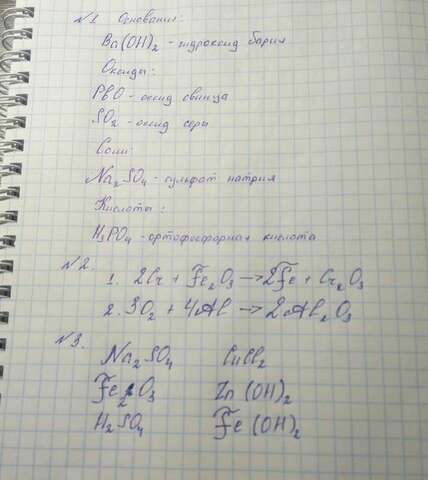 №1. Основания:
Ba(OH)₂ - гидроксид бария
Оксиды:
PbO - оксид свинца
SO₂ - оксид серы
Соли:
Na₂SO₄ - сульфат натрия
Кислоты:
H₃PO₄ - ортофосфорная кислота
№2.
1. 2Cr + Fe₂O₃ → 2Fe + Cr₂O₃
2. 3O₂ + 4Al → 2Al₂O₃
№3.
Na₂SO₄ CuCl₂
Fe₂O₃ Zn(OH)₂
H₂SO₄ Fe(OH)₂